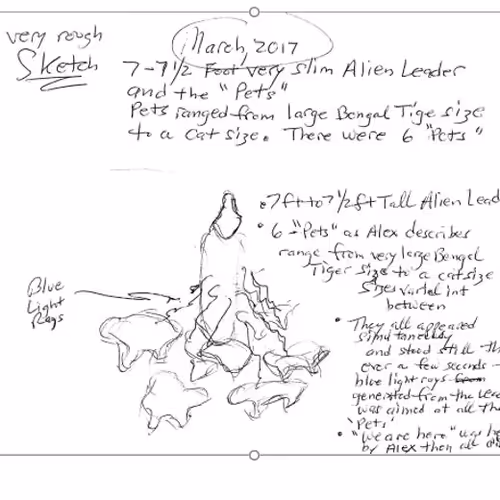 very rough
Sketch
March, 2017
7-7 1/2 Foot very slim Alien Leader
and the "Pets"
Pets ranged from large Bengal Tige size
to a cat size. There were 6 "Pets"
• 7ft to 7 1/2 ft Tall Alien Lead
• 6 - "Pets" as Alex describes
range from very large Bengal
Tiger size to a cat size
Sizes varied int
between
Blue
Light
Rays
• They all appeared
simultaneously
and stood still th
over a few seconds -
blue light rays from
generated from the Lea
was aimed at all the
"Pets"
• "We are here" was he
by Alex then all di